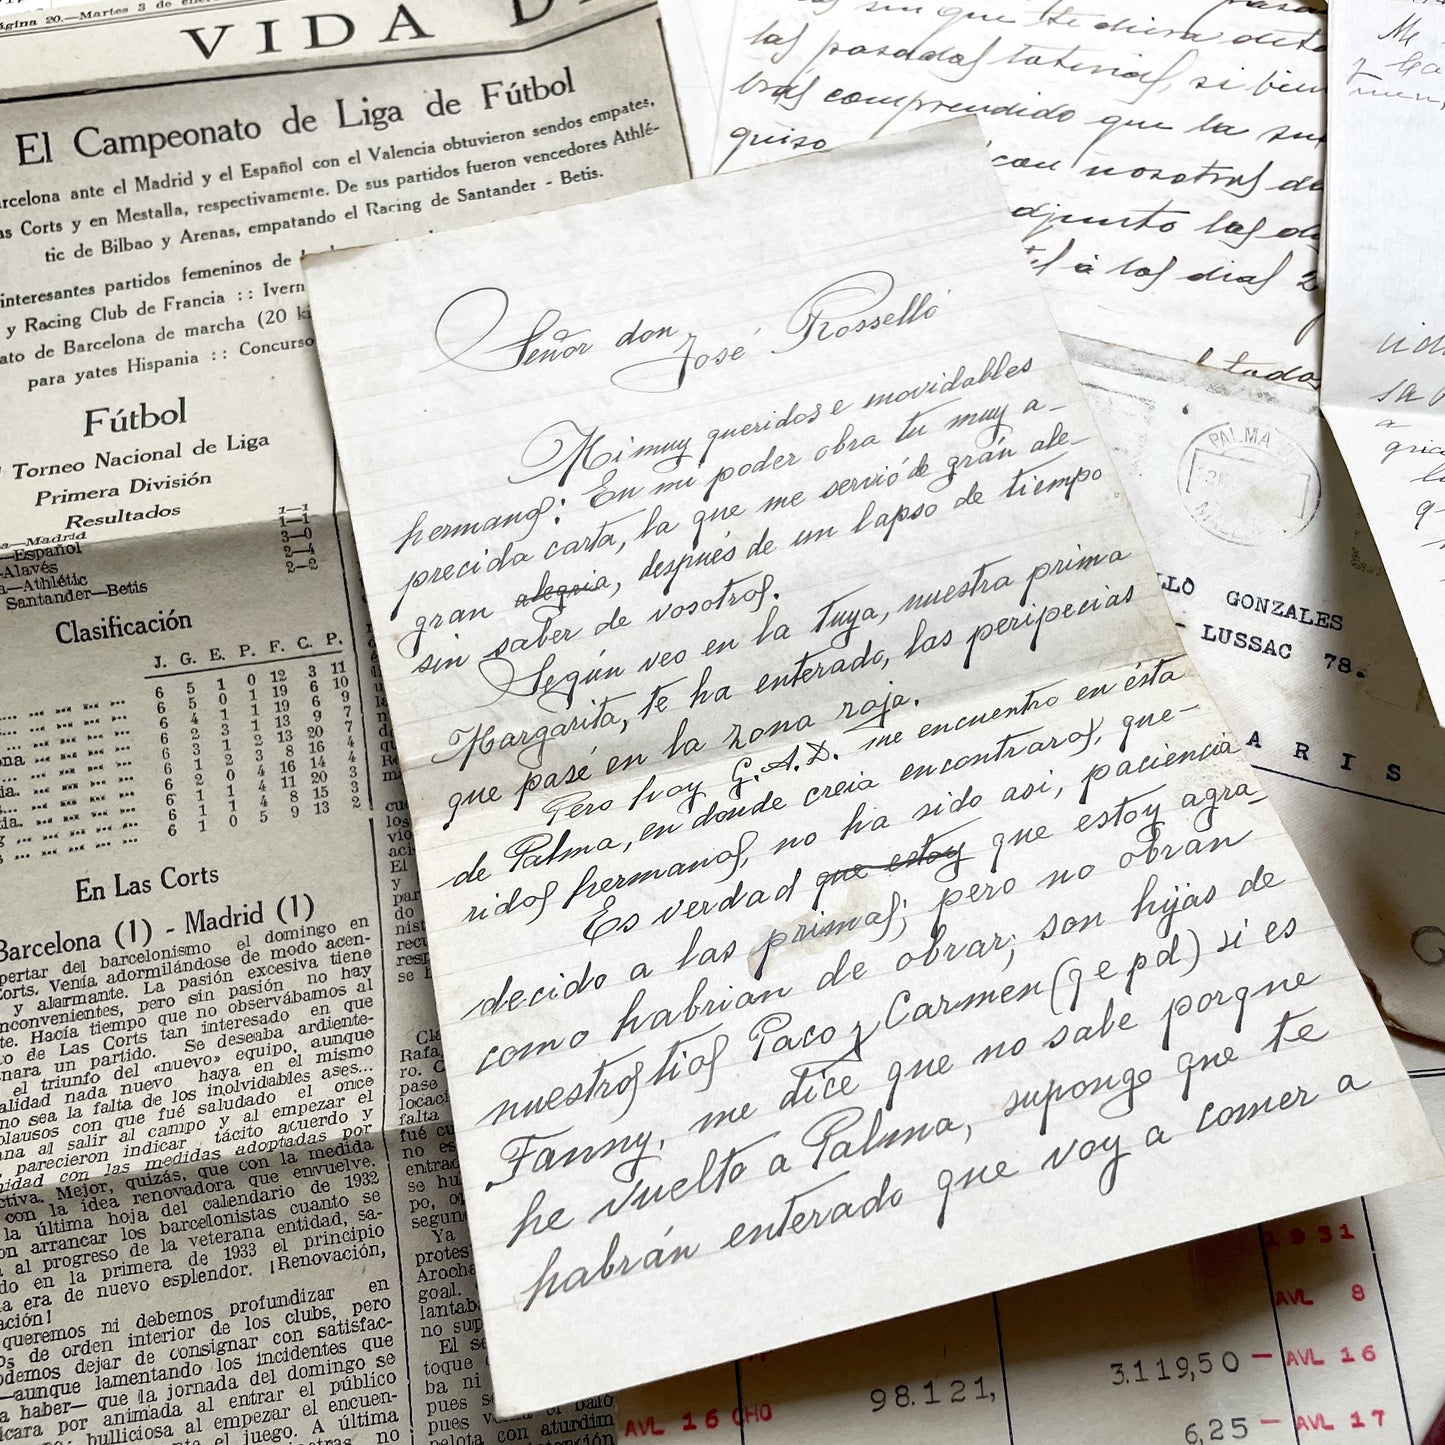 Página 20.—Martes 3 de
VIDA D
El Campeonato de Liga de Fútbol
arcelona ante el Madrid y el Español con el Valencia obtuvieron sendos empates,
as Corts y en Mestalla, respectivamente. De sus partidos fueron vencedores Athlé-
tic de Bilbao y Arenas, empatando el Racing de Santander - Betis.
interesantes partidos femeninos de
y Racing Club de Francia :: Ivern
ato de Barcelona de marcha (20 ki
para yates Hispania :: Concurso
Fútbol
Torneo Nacional de Liga
Primera División
Resultados
a—Madrid 1—1
—Español 1—1
—Alavés 3—0
a—Athlétic 2—4
Santander—Betis 2—2
Clasificación
J. G. E. P. F. C. P.
6 5 1 0 12 3 11
6 5 0 1 19 6 10
6 4 1 1 19 6 9
6 2 3 1 13 9 7
ona 6 3 1 2 13 20 7
6 1 2 3 8 16 4
ia. 6 2 0 4 16 14 4
6 1 1 4 11 20 3
tia. 6 1 1 4 8 15 3
6 1 0 5 9 13 2
En Las Corts
Barcelona (1) - Madrid (1)
pertar del barcelonismo el domingo en
Corts. Venía adormilándose de modo acen-
y alarmante. La pasión excesiva tiene
inconvenientes, pero sin pasión no hay
te. Hacía tiempo que no observábamos al
o de Las Corts tan interesado en que
nara un partido. Se deseaba ardiente-
el triunfo del «nuevo» equipo, aunque
alidad nada nuevo haya en el mismo
no sea la falta de los inolvidables ases...
plausos con que fué saludado el once
na al salir al campo y al empezar el
parecieron indicar tácito acuerdo y
nidad con las medidas adoptadas por
ctiva. Mejor, quizás, que con la medida
con la idea renovadora que envuelve.
la última hoja del calendario de 1932
on arrancar los barcelonistas cuanto se
a al progreso de la veterana entidad, sa-
do en la primera de 1933 el principio
a era de nuevo esplendor. ¡Renovación,
ación!
queremos ni debemos profundizar en
os de orden interior de los clubs, pero
odemos dejar de consignar con satisfac-
—aunque lamentando los incidentes que
a haber— que la jornada del domingo se
icara por animada al entrar el público
bulliciosa al empezar el encuen-
el juego. A última
Señor don José Rosselló
Mi muy queridos e inovidables
hermanos: En mi poder obra tu muy a-
precida carta, la que me servió de grán ale-
gran alegria, después de un lapso de tiempo
sin saber de vosotros.
Según veo en la tuya, nuestra prima
Margarita, te ha enterado, las peripecias
que pasé en la zona roja.
Pero hoy G.A.D. me encuentro en ésta
de Palma, en donde creia encontraros, que-
ridos hermanos, no ha sido asi, paciencia
Es verdad que estoy que estoy agra-
decido a las primas; pero no obran
como habrian de obrar; son hijas de
nuestros tios Paco y Carmen (q e p d) si es
Fanny, me dice que no sabe porque
he vuelto a Palma, supongo que te
habrán enterado que voy a comer a
sin que te diera deta
las pasadas
si bien
brás comprendido que la su
quiso
con nosotros de
djunto los d
á los dias 2
todos
PALMA
LLO GONZALES
- LUSSAC 78.
ARIS
1931
AVL 8
3.119,50 — AVL 16
98.121,
AVL 16 CHO
6,25 — AVL 17